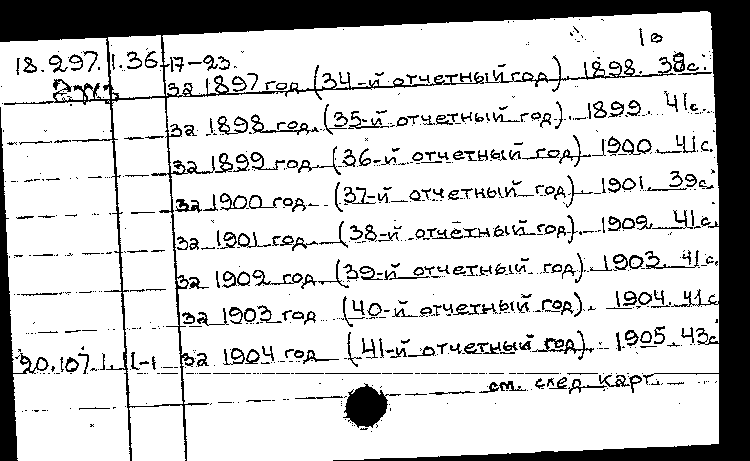 10
18.297.1.36 17-23.
за 1897 год (34-й отчетный год). 1898. 38с.
за 1898 год. (35-й отчетный год). 1899. 41с.
за 1899 год. (36-й отчетный год). 1900. 41с.
за 1900 год. (37-й отчетный год). 1901. 39с.
за 1901 год. (38-й отчетный год). 1902. 41с.
за 1902 год. (39-й отчетный год). 1903. 41с.
за 1903 год (40-й отчетный год). 1904. 41с
20.107.1.11-1 за 1904 год (41-й отчетный год). 1905. 43с
см. след. карт.